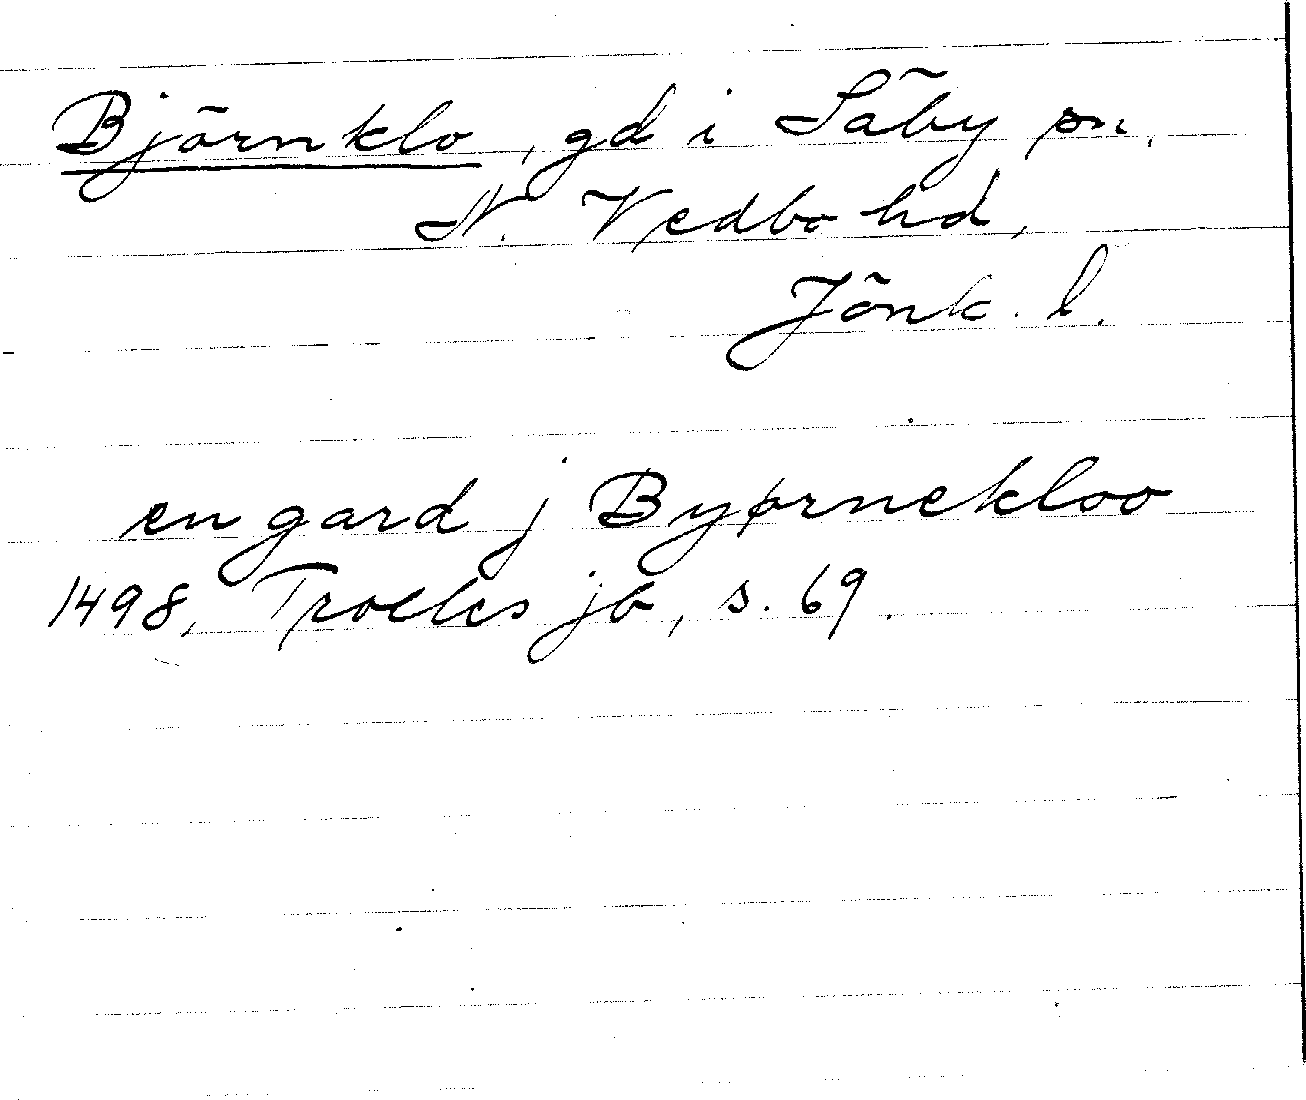 Björnklo, gd i Säby sn,
N. Vedbo hd,
Jönk. l.
en gard j Byørnekloo
1498, Trolles jb, s. 69.